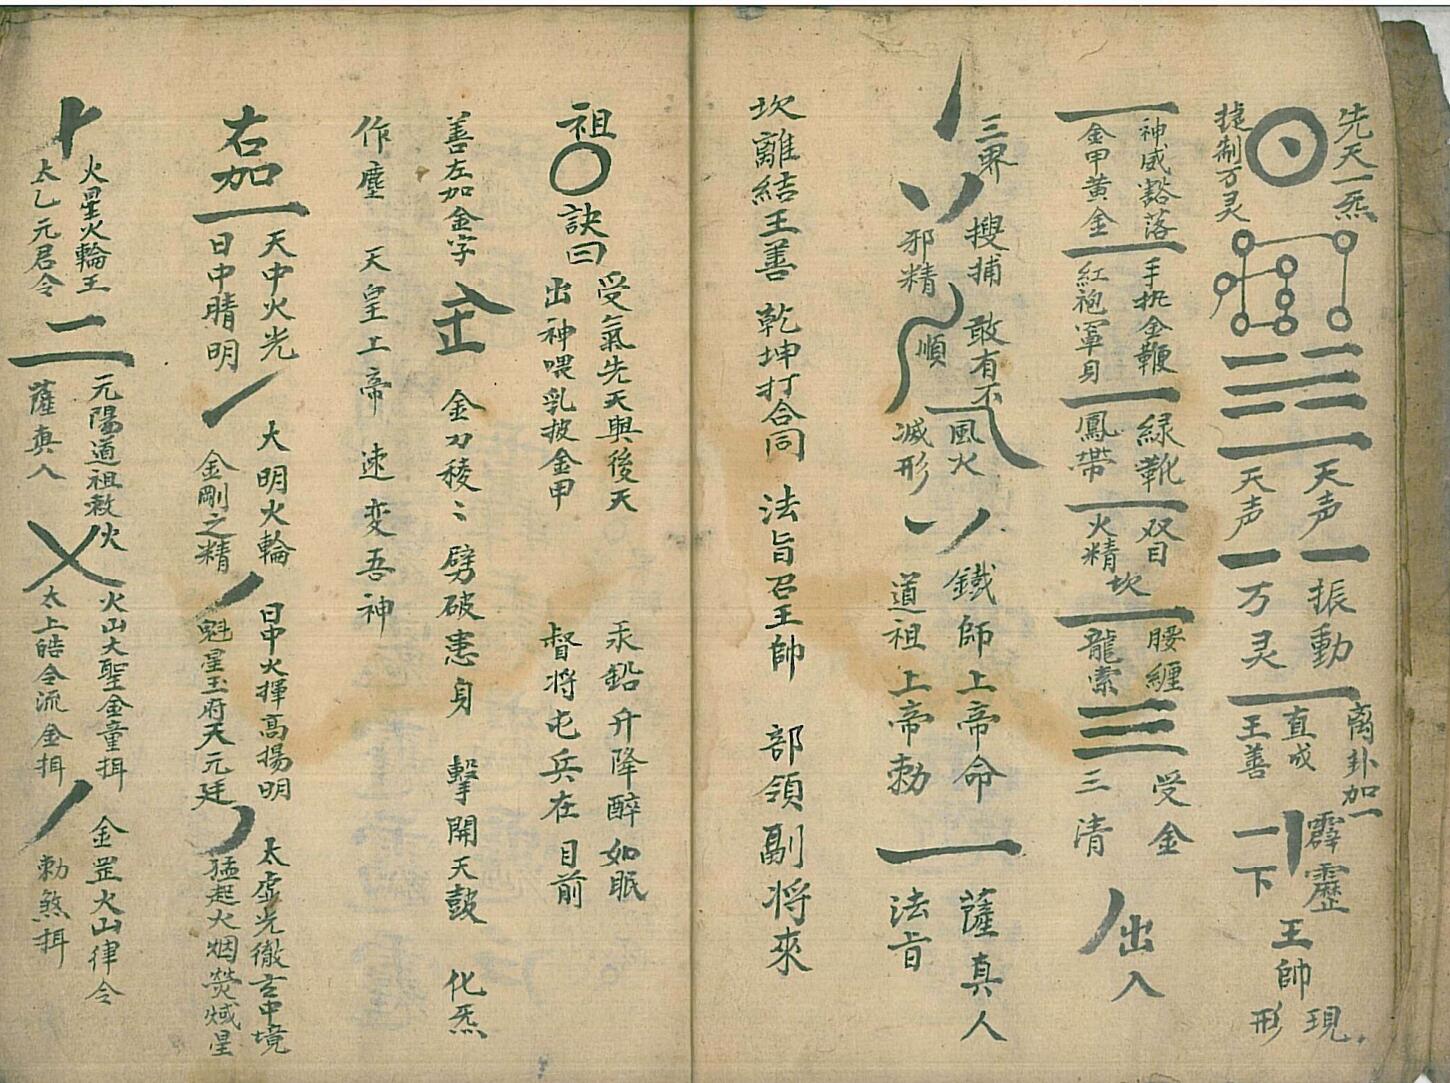 先天一炁
㨗制万灵
天声
天声
振動
万灵
离卦加一
直成
王善
霹靂
一下
王帥
現
形
神威豁落
金甲黄金
手执金鞭
紅袍罩身
緑靴
鳳帶
双目
火精
坎
腰纏
龍索
受金
三清
出入
三界
搜捕
邪精
敢有不
順
風火
滅形
鐵師上帝命
道祖上帝勅
薩真人
法旨
坎離結王善 乾坤打合同 法旨召王帥 部領副將來
祖
訣曰
受氣先天與後天
出神喂乳披金甲
汞鉛升降醉如眠
督将屯兵在目前
善左加金字
金刀稜〻 劈破患身 擊開天鼓 化炁
作塵 天皇上帝 速变吾神
右加
天中火光
日中晴明
大明火輪
金剛之精
日中火揮高揚明
魁星玉府天元廷
太虚光徹玄中境
猛起火烟熒惑星
火星火輪王
太乙元君令
二
元陽道祖救火
薩真人
火山大聖金童揖
太上皓令流金揖
金罡火山律令
勅煞揖